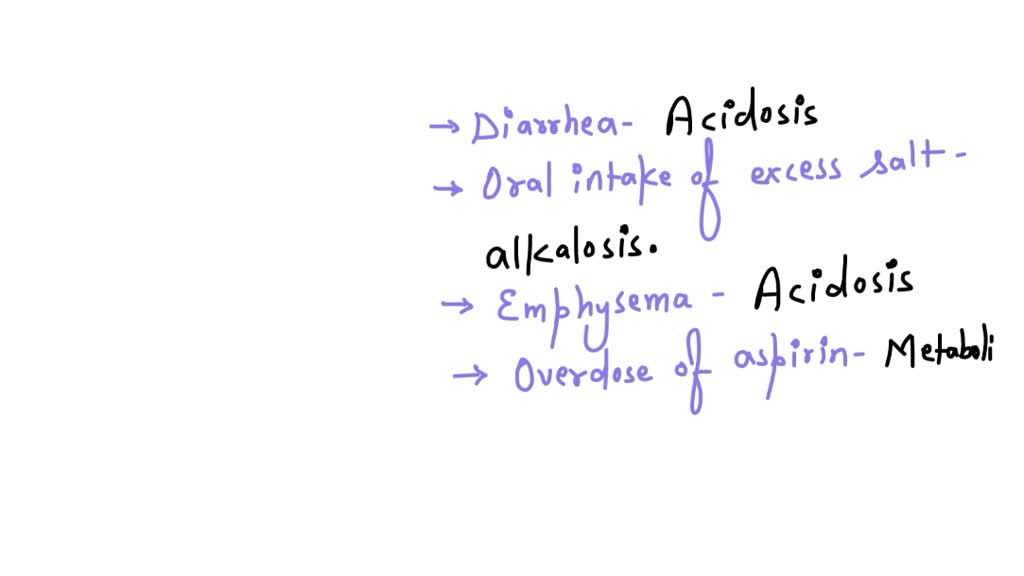 → Diarrhea- Acidosis
→ Oral intake of excess salt-
alkalosis.
→ Emphysema - Acidosis
→ Overdose of aspirin- Metaboli